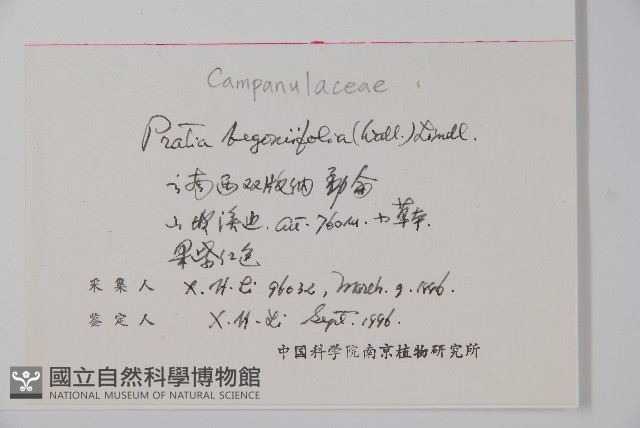 Campanulaceae
Pratia begoniifolia (Wall.) Lindl.
云南西双版纳 勐仑
山坡溪边. alt. 760m. 小草本.
果紫红色
采集人 X. H. Li 96032, March. 9. 1996.
鉴定人 X. H. Li Sept. 1996.
中国科学院南京植物研究所
國立自然科學博物館
NATIONAL MUSEUM OF NATURAL SCIENCE